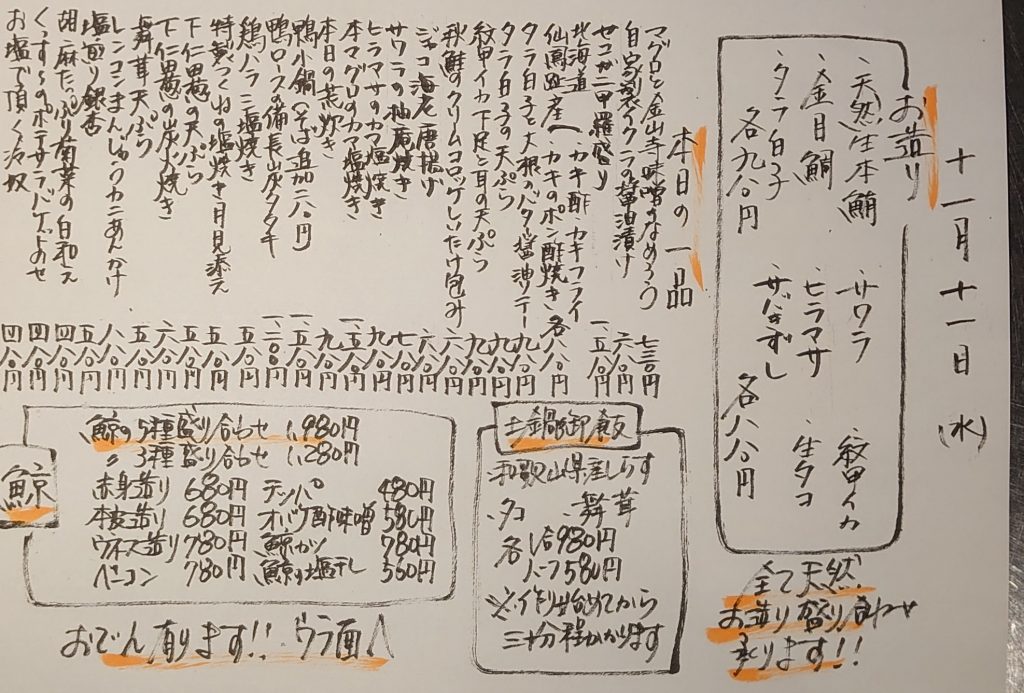 十一月十一日(水)
お造り
・天然生本鮪
・金目鯛
・タラ白子
各九八〇円
・サワラ
・ヒラマサ
・サバきずし
・紋甲イカ
・生タコ
各八八〇円
全て天然
お造り盛り合わせ
承ります!!
本日の一品
マグロと金山寺味噌のなめろう 七三〇円
自家製イクラの醤油漬け 六八〇円
セコガニ甲羅盛り 一、五八〇円
北海道
仙鳳趾産へ ・カキ酢・カキフライ
・カキのポン酢焼き 各八八〇円
タラ白子と大根のバター醤油ソテー 九八〇円
タラ白子の天ぷら 九八〇円
紋甲イカ下足と耳の天ぷら
秋鮭のクリームコロッケしいたけ包み
ジャコ海老唐揚げ
サワラの柚庵焼き
ヒラマサのカマ塩焼き
本マグロのカマ塩焼き
本日の荒炊き
鴨小鍋(そば追加二八〇円)
鴨ロースの備長炭タタキ
鶏ハラミ塩焼き
特製つくねの塩焼き月見添え
下仁田葱の天ぷら
下仁田葱の炭火焼き
舞茸天ぷら
レンコンまんじゅうカニあんかけ
塩煎り銀杏
胡麻たっぷり菊菜の白和え
くんずーのポテサラバゲットのせ
お塩で頂く冷奴 四八〇円
土鍋御飯
和歌山県産しらす
・タコ ・舞茸
各一合980円
ハーフ580円
※作り始めてから
三十分程かかります
鯨
鯨の5種盛り合わせ 1,980円
〃 3種盛り合わせ 1,280円
赤身造り 680円 テッパ 480円
本皮造り 680円 オバケ酢味噌 580円
ウネス造り 780円 鯨カツ 780円
ベーコン 780円 鯨の塩干し 560円
おでん有ります!! ウラ面へ